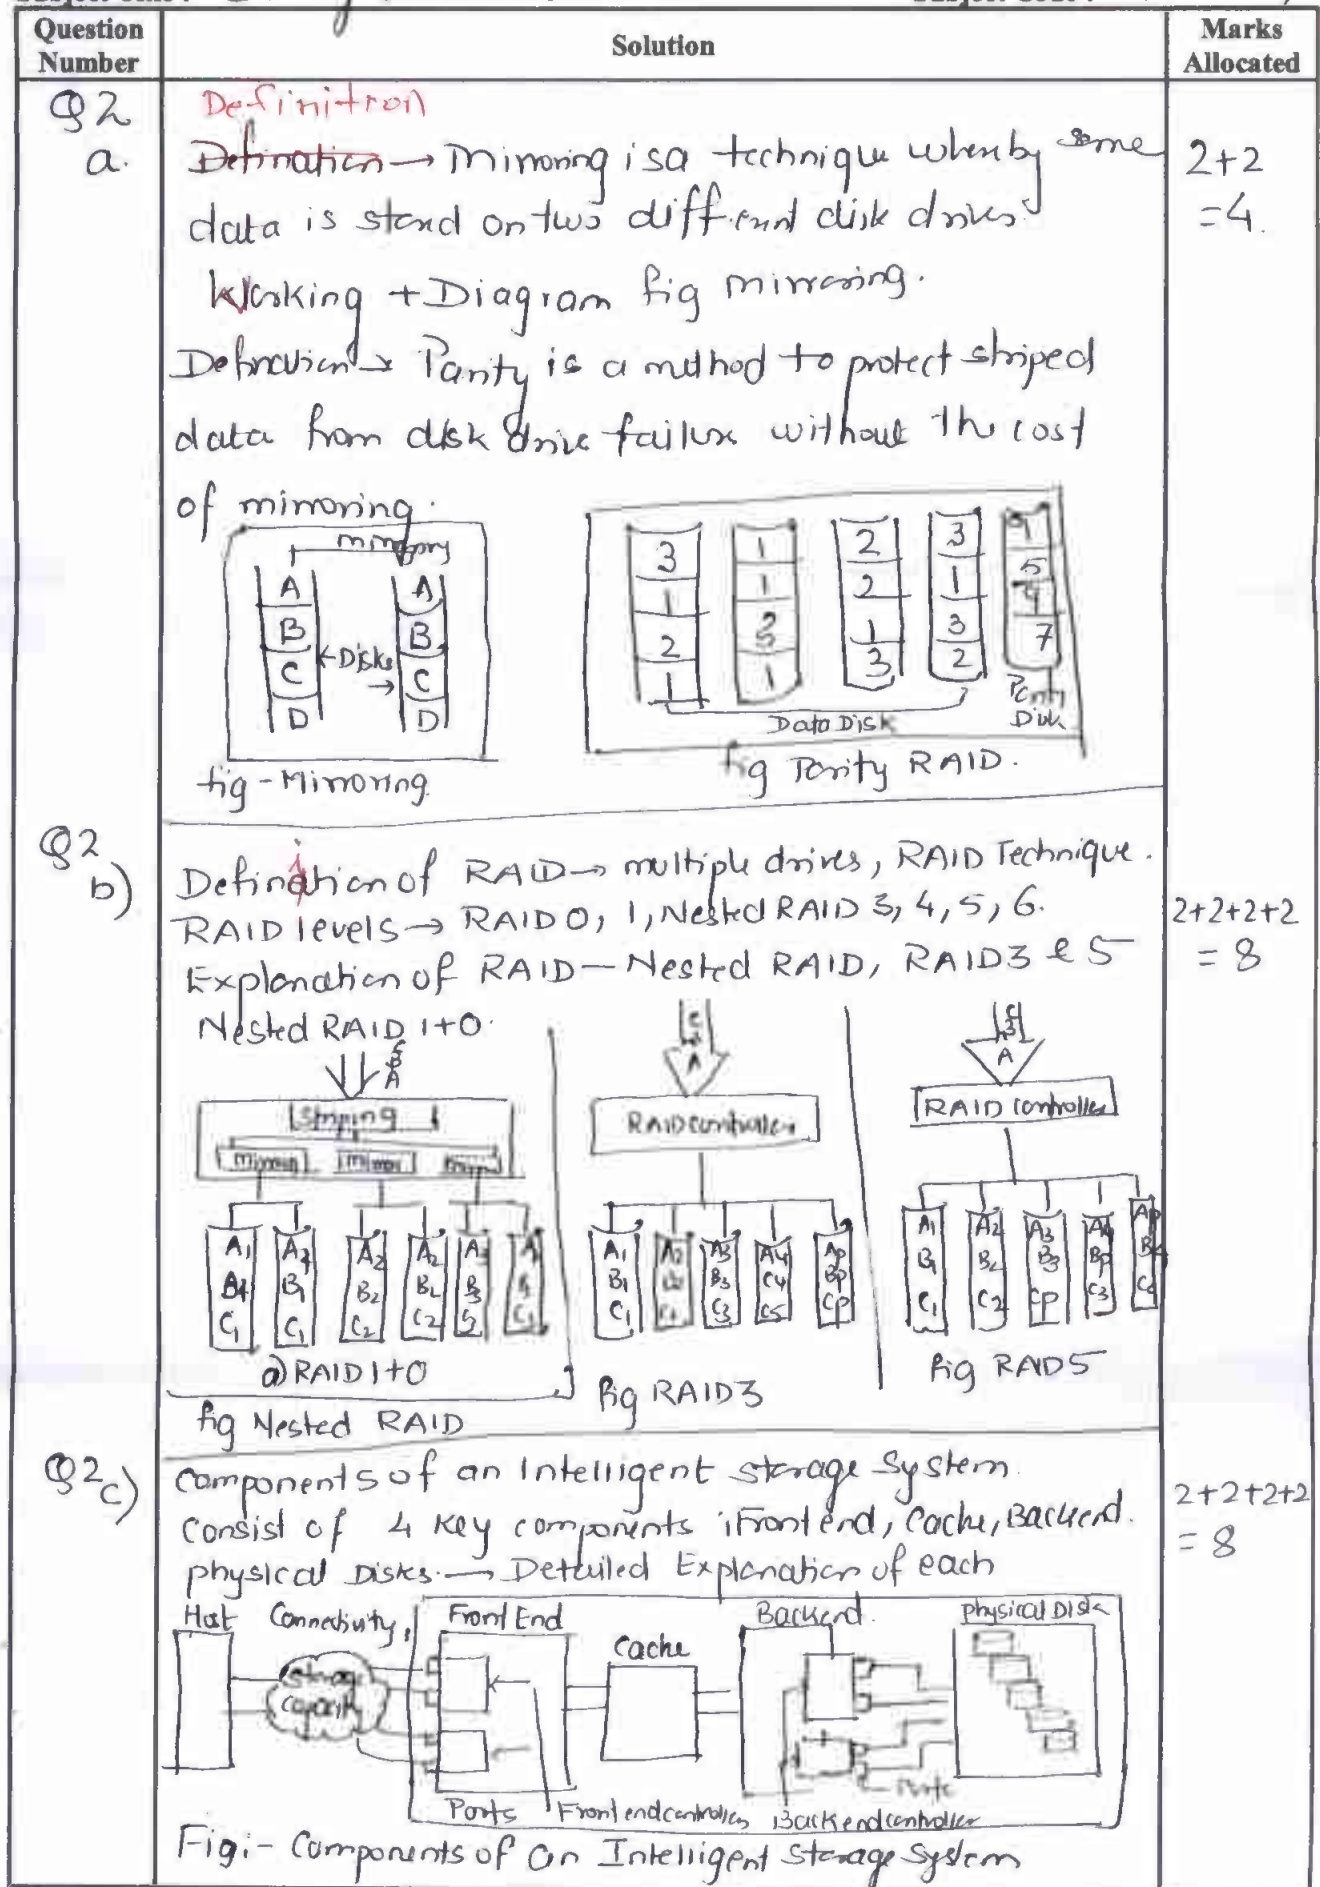 Question Number
Solution
Marks Allocated
Q2
a.
Definitron
Defination → Mirroring is a technique whereby same
data is stored on two different disk drives
2+2
=4.
Working + Diagram fig mirroring.
Defination → Parity is a method to protect striped
data from disk drive failure without the cost
of mirroring.
mirroring
A
B
C
D
←Disks→
A
B
C
D
fig - Mirroring
3
1
2
1
1
1
1
2
2
1
3
3
1
3
2
5
7
Data Disk
Parity
Disk
fig Parity RAID.
Q2
b)
Definition of RAID → multiple drives, RAID Technique.
RAID levels → RAID 0, 1, Nested RAID 3, 4, 5, 6.
2+2+2+2
= 8
Explanation of RAID — Nested RAID, RAID3 & 5
Nested RAID 1+0.
C
B
A
Striping
mirror
mirror
A1
A4
C1
B1
C1
A2
B2
C2
A2
B2
C2
A3
B3
a) RAID 1+0
fig Nested RAID
A
RAID controller
A1
B1
C1
A2
A3
B3
C3
A4
C4
C5
Ap
Bp
Cp
fig RAID3
C
B
A
RAID controller
A1
B1
C1
A2
B2
C2
A3
B3
Cp
A4
Bp
C3
Ap
B4
C4
fig RAD5
Q2
c)
Components of an Intelligent storage System
consist of 4 key components : Front end, Cache, Backend.
2+2+2+2
= 8
physical Disks. → Detailed Explanation of each
Host
Connectivity
Front End
Cache
Backend.
physical Disk
storage
capacity
Ports
Ports
Front end controllers
Backend controller
Fig:- Components of an Intelligent Storage System